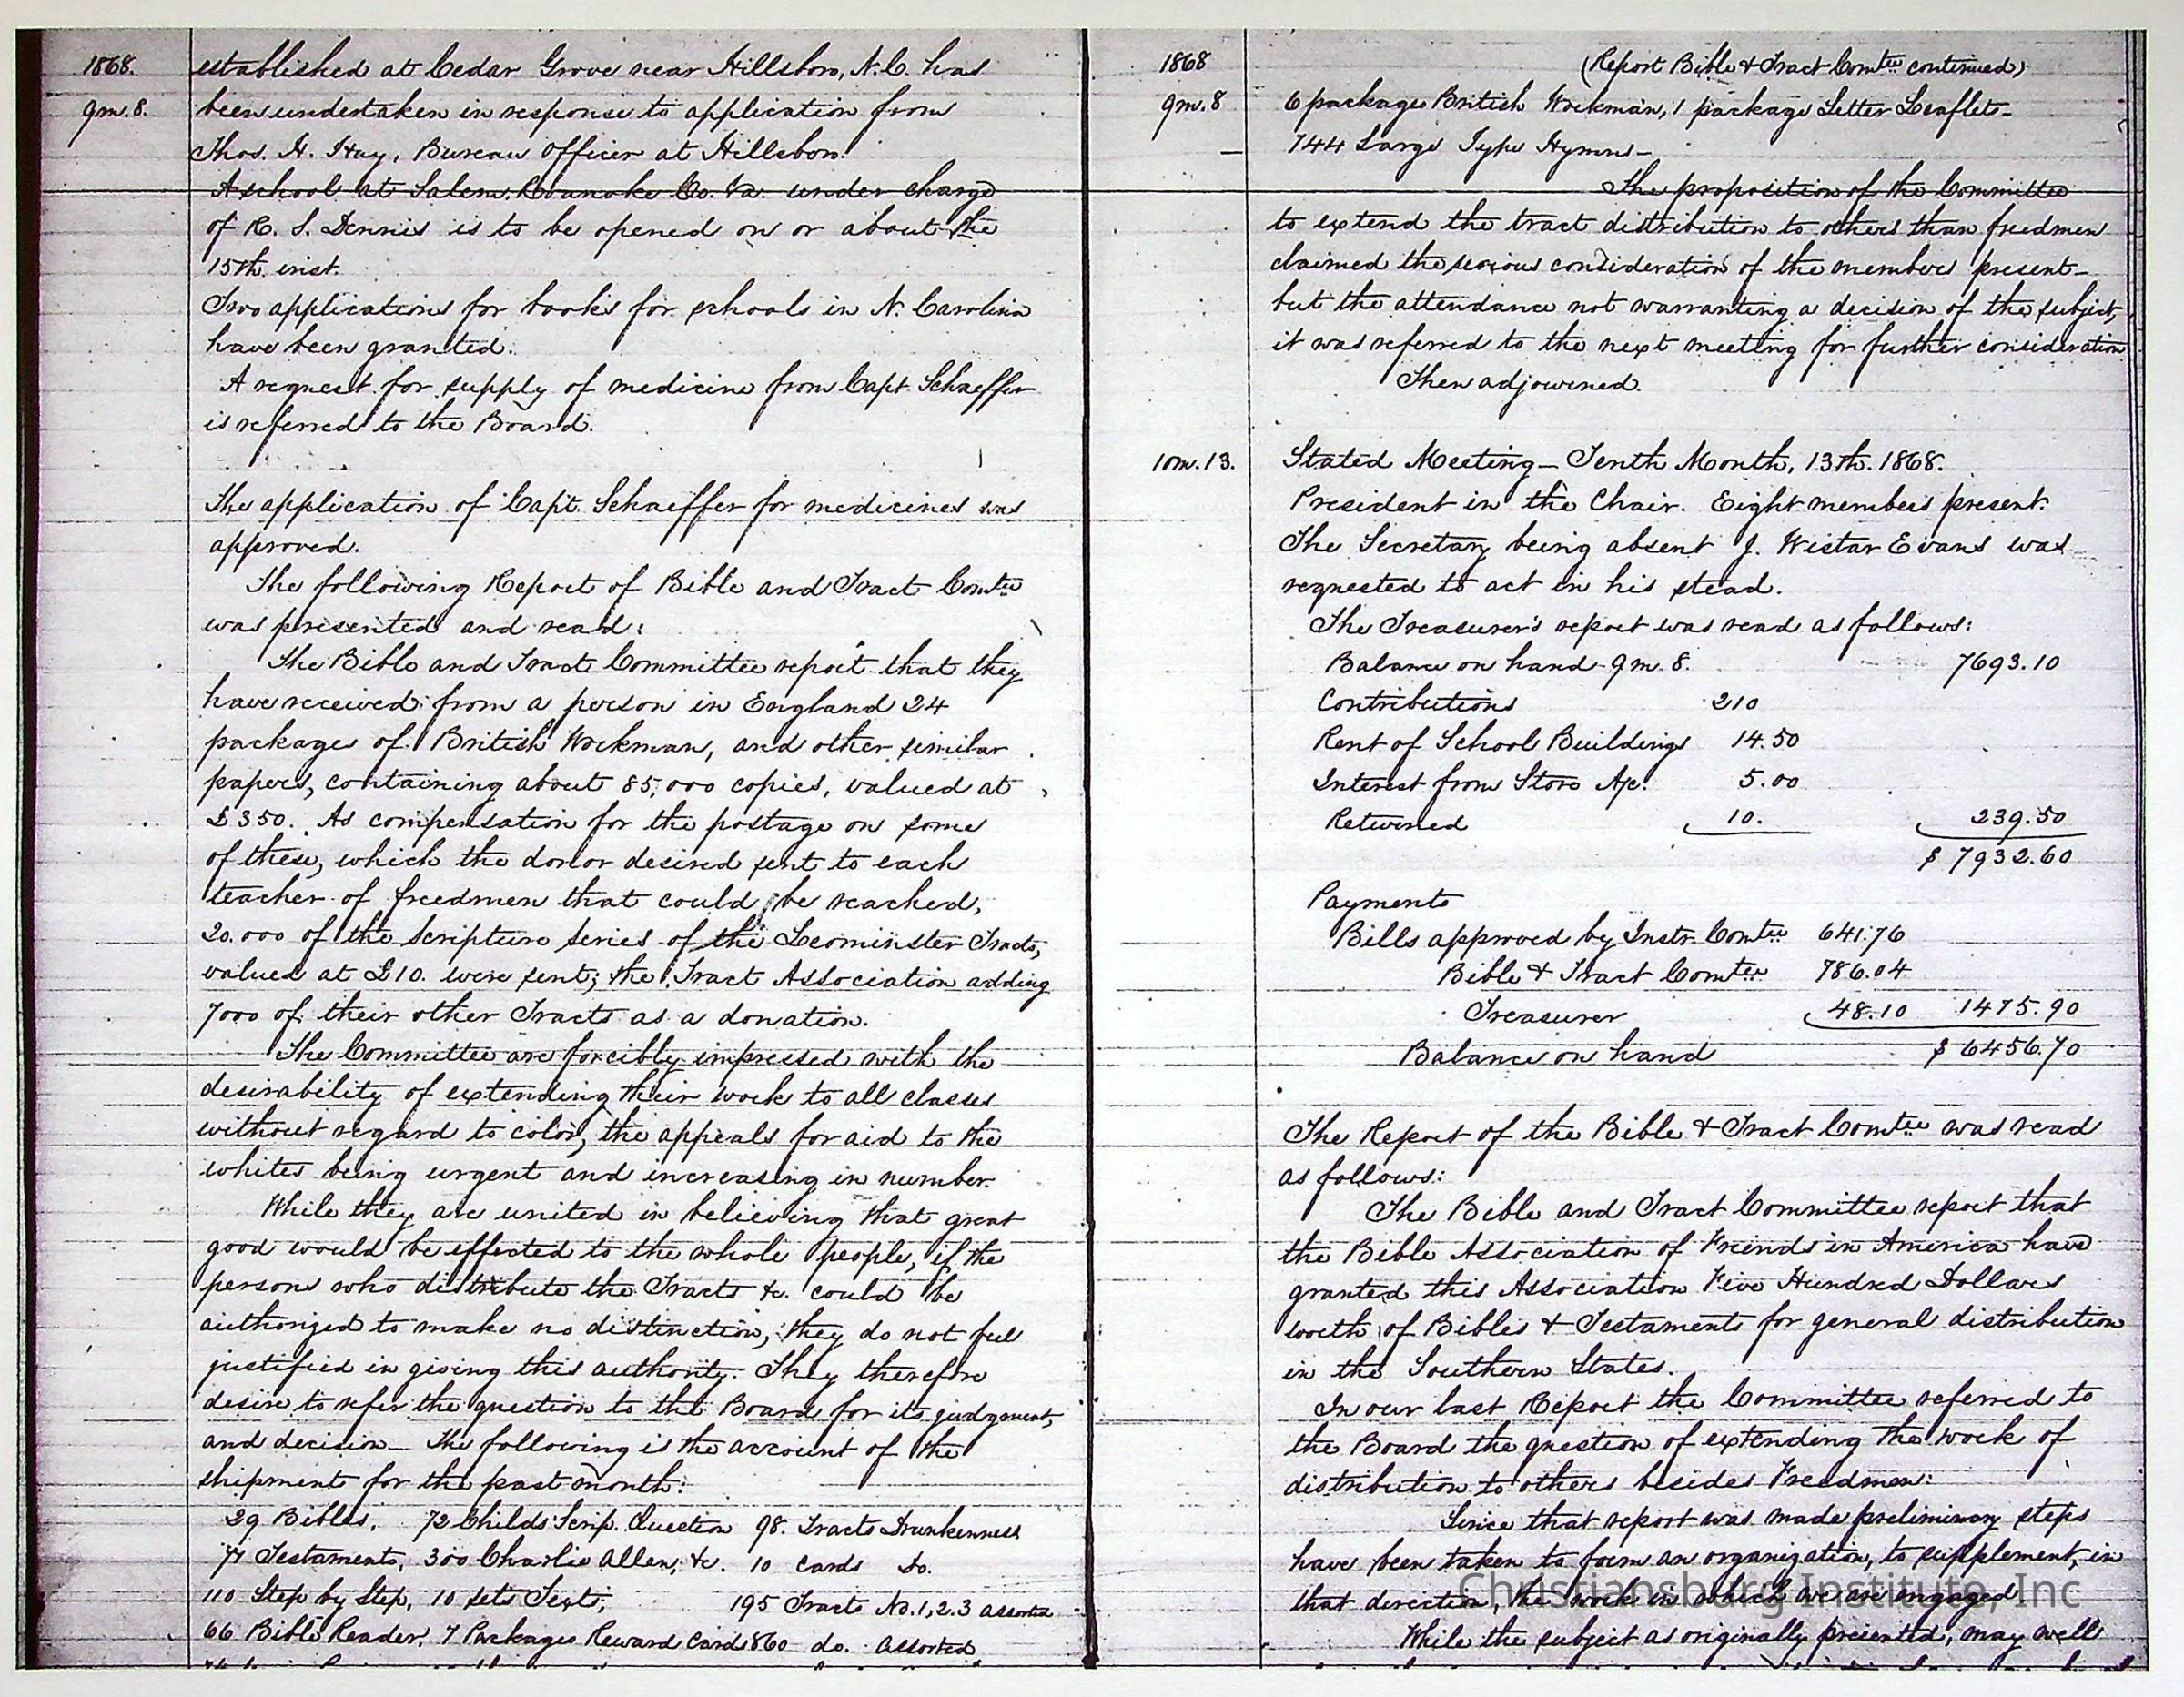 1868.
established at Cedar Grove near Hillsboro, N.C. has
9m.8.
been undertaken in response to application from
Thos. H. Hay, Bureau Officer at Hillsboro.
A school at Salem, Roanoke Co. Va. under charge
of R. S. Dennis is to be opened on or about the
15th inst.
Two applications for books for schools in N. Carolina
have been granted.
A request for supply of medicine from Capt Schaeffer
is referred to the Board.
The application of Capt. Schaeffer for medicines was
approved.
The following Report of Bible and Tract Comtee
was presented and read:
The Bible and Tract Committee report that they
have received from a person in England 24
packages of British Workman, and other similar
papers, containing about 85,000 copies, valued at
£350. As compensation for the postage on some
of these, which the donor desired sent to each
teacher of freedmen that could be reached,
20.000 of the Scripture series of the Leominster Tracts,
valued at £10. were sent; the Tract Association adding
7000 of their other Tracts as a donation.
The Committee are forcibly impressed with the
desirability of extending their work to all classes
without regard to color, the appeals for aid to the
whites being urgent and increasing in number.
While they are united in believing that great
good would be effected to the whole people, if the
persons who distribute the Tracts &c. could be
authorized to make no distinction, they do not feel
justified in giving this authority. They therefore
desire to refer the question to the Board for its judgment,
and decision_ The following is the account of the
shipments for the past month:
29 Bibles, 72 Childs' Scrip. Question 98. Tracts Drunkenness
77 Testaments, 300 Charlie Allen, &c. 10 Cards Do.
110 Step by Step, 10 sets Texts, 195 Tracts No.1,2.3 assorted
66 Bible Reader, 7 Packages Reward Cards 860 do. assorted
1868
(Report Bible & Tract Comtee continued)
9m.8
6 packages British Workman, 1 package Letter Leaflets_
744 Large Type Hymns_
The proposition of the Committee
to extend the tract distribution to others than freedmen
claimed the serious consideration of the members present_
but the attendance not warranting a decision of the subject,
it was referred to the next meeting for further consideration
Then adjourned.
10m.13.
Stated Meeting_ Tenth Month, 13th. 1868.
President in the Chair. Eight members present.
The Secretary being absent J. Wistar Evans was
requested to act in his stead.
The Treasurer's report was read as follows:
Balance on hand 9m.8. 7693.10
Contributions 210
Rent of School Buildings 14.50
Interest from Store A/c. 5.00
Returned 10. 239.50
$ 7932.60
Payments
Bills approved by Instr. Comtee 641.76
Bible & Tract Comtee 786.04
Treasurer 48.10 1475.90
Balance on hand $ 6456.70
The Report of the Bible & Tract Comtee was read
as follows:
The Bible and Tract Committee report that
the Bible Association of Friends in America have
granted this Association Five Hundred Dollars
worth of Bibles & Testaments for general distribution
in the Southern States.
In our last Report the Committee referred to
the Board the question of extending the work of
distribution to others besides Freedmen:
Since that report was made preliminary steps
have been taken to form an organization, to supplement, in
that direction, the work in which we are engaged.
While the subject as originally presented, may well
Christiansburg Institute, Inc